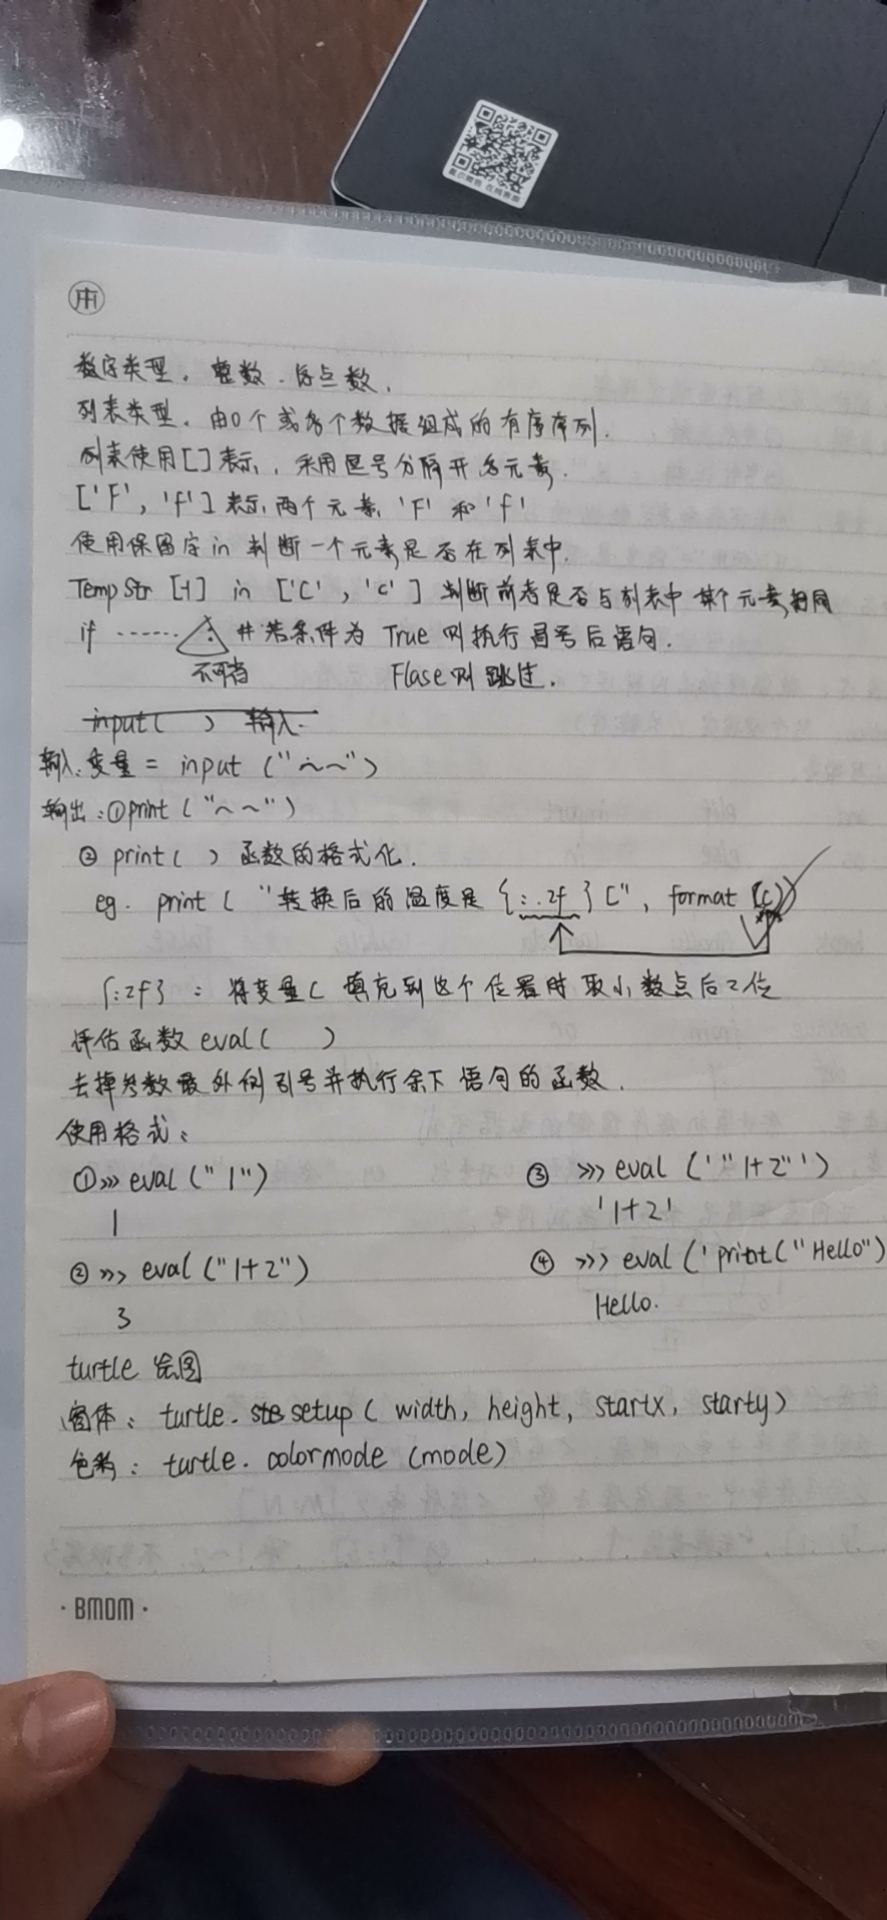 数字类型. 整数. 浮点数.
列表类型. 由0个或多个数据组成的有序序列.
列表使用[]表示, 采用逗号分隔开多元素.
['F', 'f']表示两个元素 'F' 和 'f'
使用保留字in 判断一个元素是否在列表中.
TempStr [-1] in ['C', 'c'] 判断前者是否与列表中某个元素相同
if ······ : #若条件为 True 则执行冒号后语句.
不可省 Flase则跳过.
input( ) 输入.
输入:变量 = input ("~~")
输出:①print ("~~")
② print( ) 函数的格式化.
eg. print ( "转换后的温度是 {:.2f}C", format (C))
{:2f} : 将变量C 填充到这个位置时 取小数点后2位
评估函数 eval( )
去掉参数最外侧引号并执行余下语句的函数.
使用格式:
①>>> eval ("1")
1
② >>> eval ("1+2")
3
③ >>> eval ('"1+2"')
'1+2'
④ >>> eval ('print("Hello")
Hello.
turtle 绘图
窗体: turtle. setup ( width, height, startx, starty)
色彩: turtle. colormode (mode)
· BMDM ·